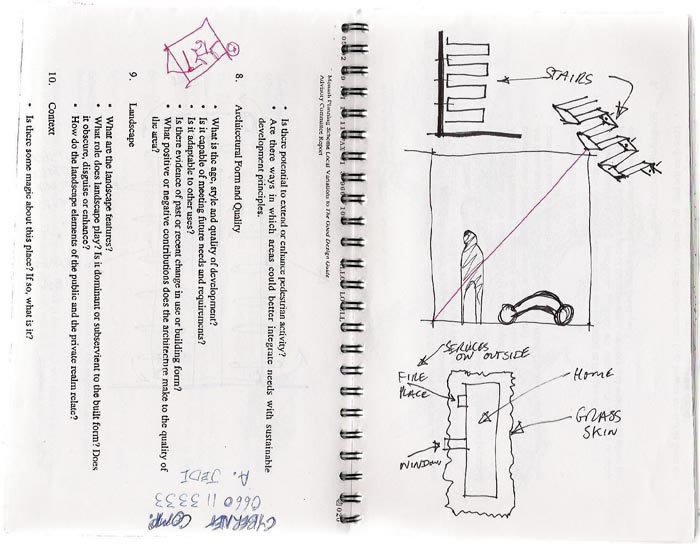 Monash Planning Scheme Local Variations to The Good Design Guide
Advisory Committee Report
• Is there potential to extend or enhance pedestrian activity?
• Are there ways in which areas could better integrate needs with sustainable
development principles.
8. Architectural Form and Quality
• What is the age, style and quality of development?
• Is it capable of meeting future needs and requirements?
• Is it adaptable to other uses?
• Is there evidence of past or recent change in use or building form?
• What positive or negative contributions does the architecture make to the quality of
the area?
9. Landscape
• What are the landscape features?
• What role does landscape play? Is it dominant or subservient to the built form? Does
it obscure, disguise or enhance?
• How do the landscape elements of the public and the private realm relate?
10. Context
• Is there some magic about this place? If so, what is it?
CYBERNET COMP.
0660 11 3333
A. JEDI
STAIRS
SERVICES
ON OUTSIDE
FIRE
PLACE
HOME
GRASS
SKIN
WINDOW